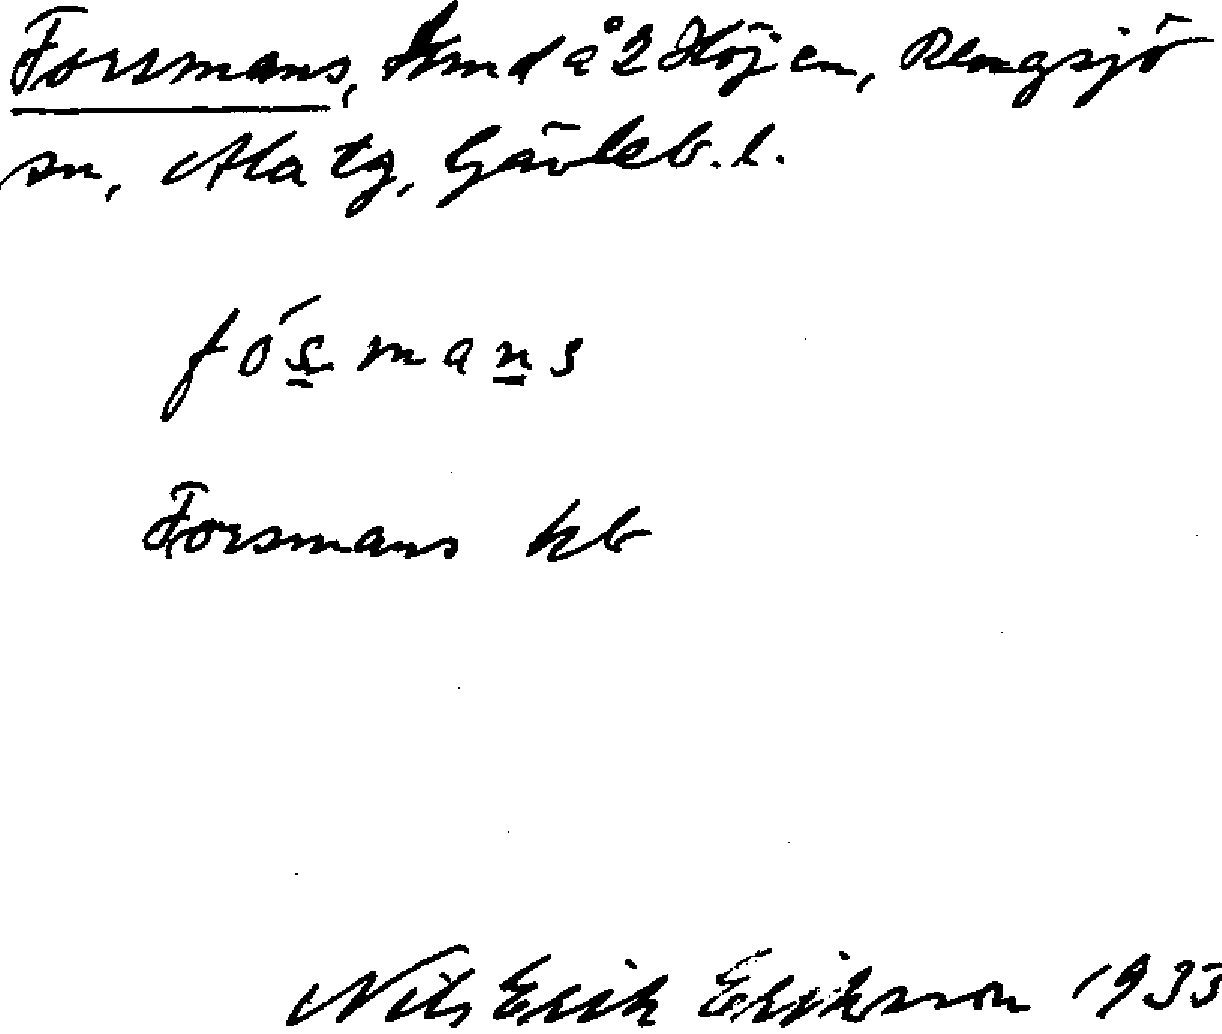 Forssmans, hmd å 2 Höjen, Rengsjö
sn, Ala tg, Gävleb. l.
fósmans
Forsmans hb
Nils Erik Eriksson 1933